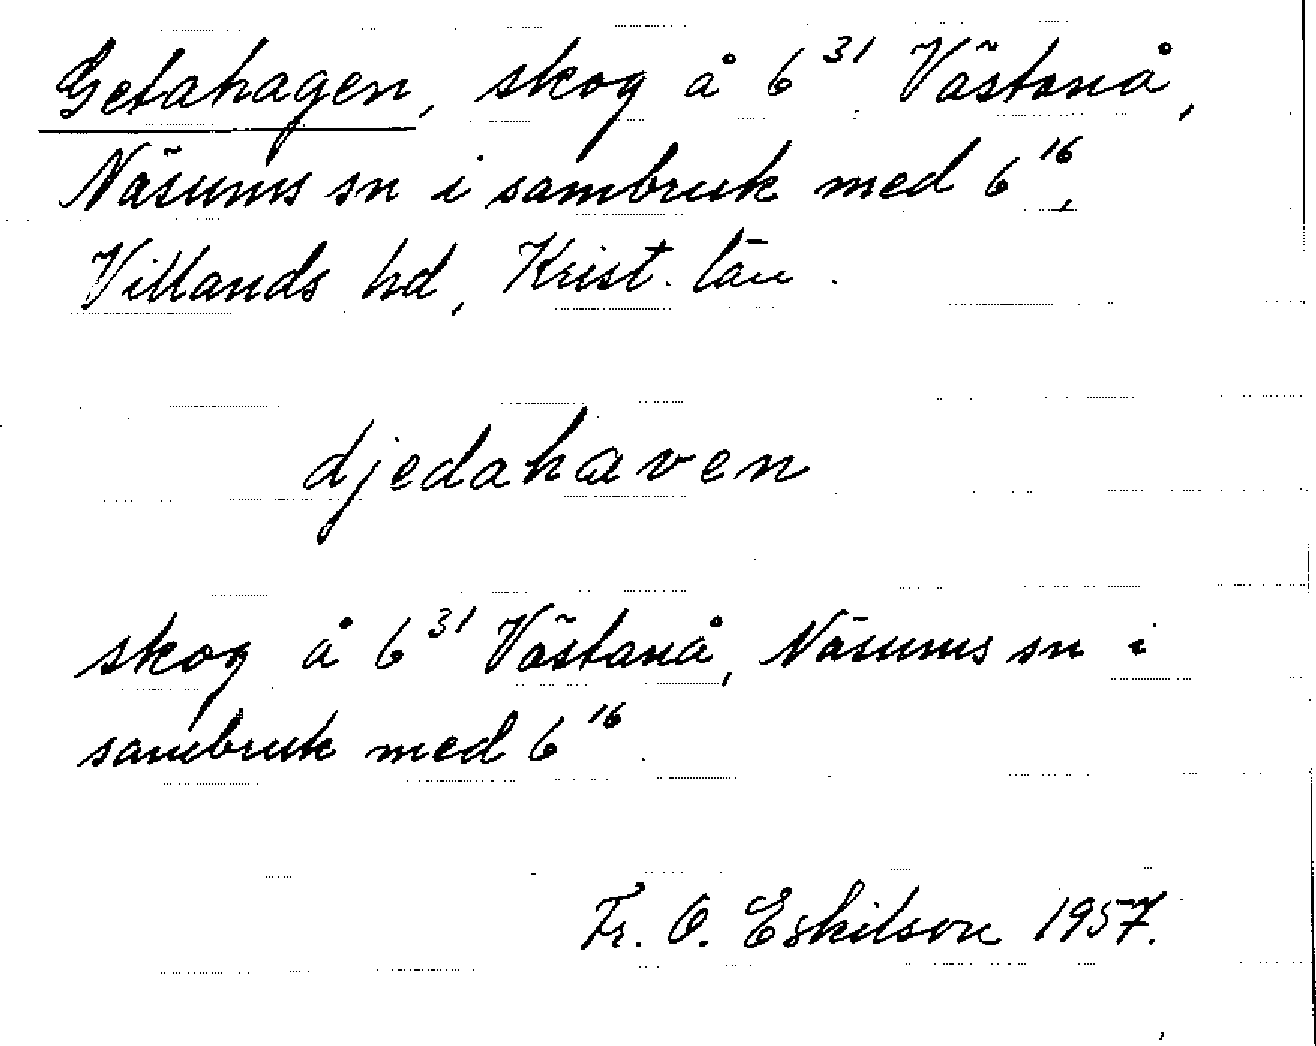 Getahagen, skog å 6³¹ Västanå,
Näsums sn i sambruk med 6¹⁶,
Villands hd, Krist. län.
djedahaven
skog å 6³¹ Västanå, Näsums sn i
sambruk med 6¹⁶.
Fr. O. Eskilson 1957.